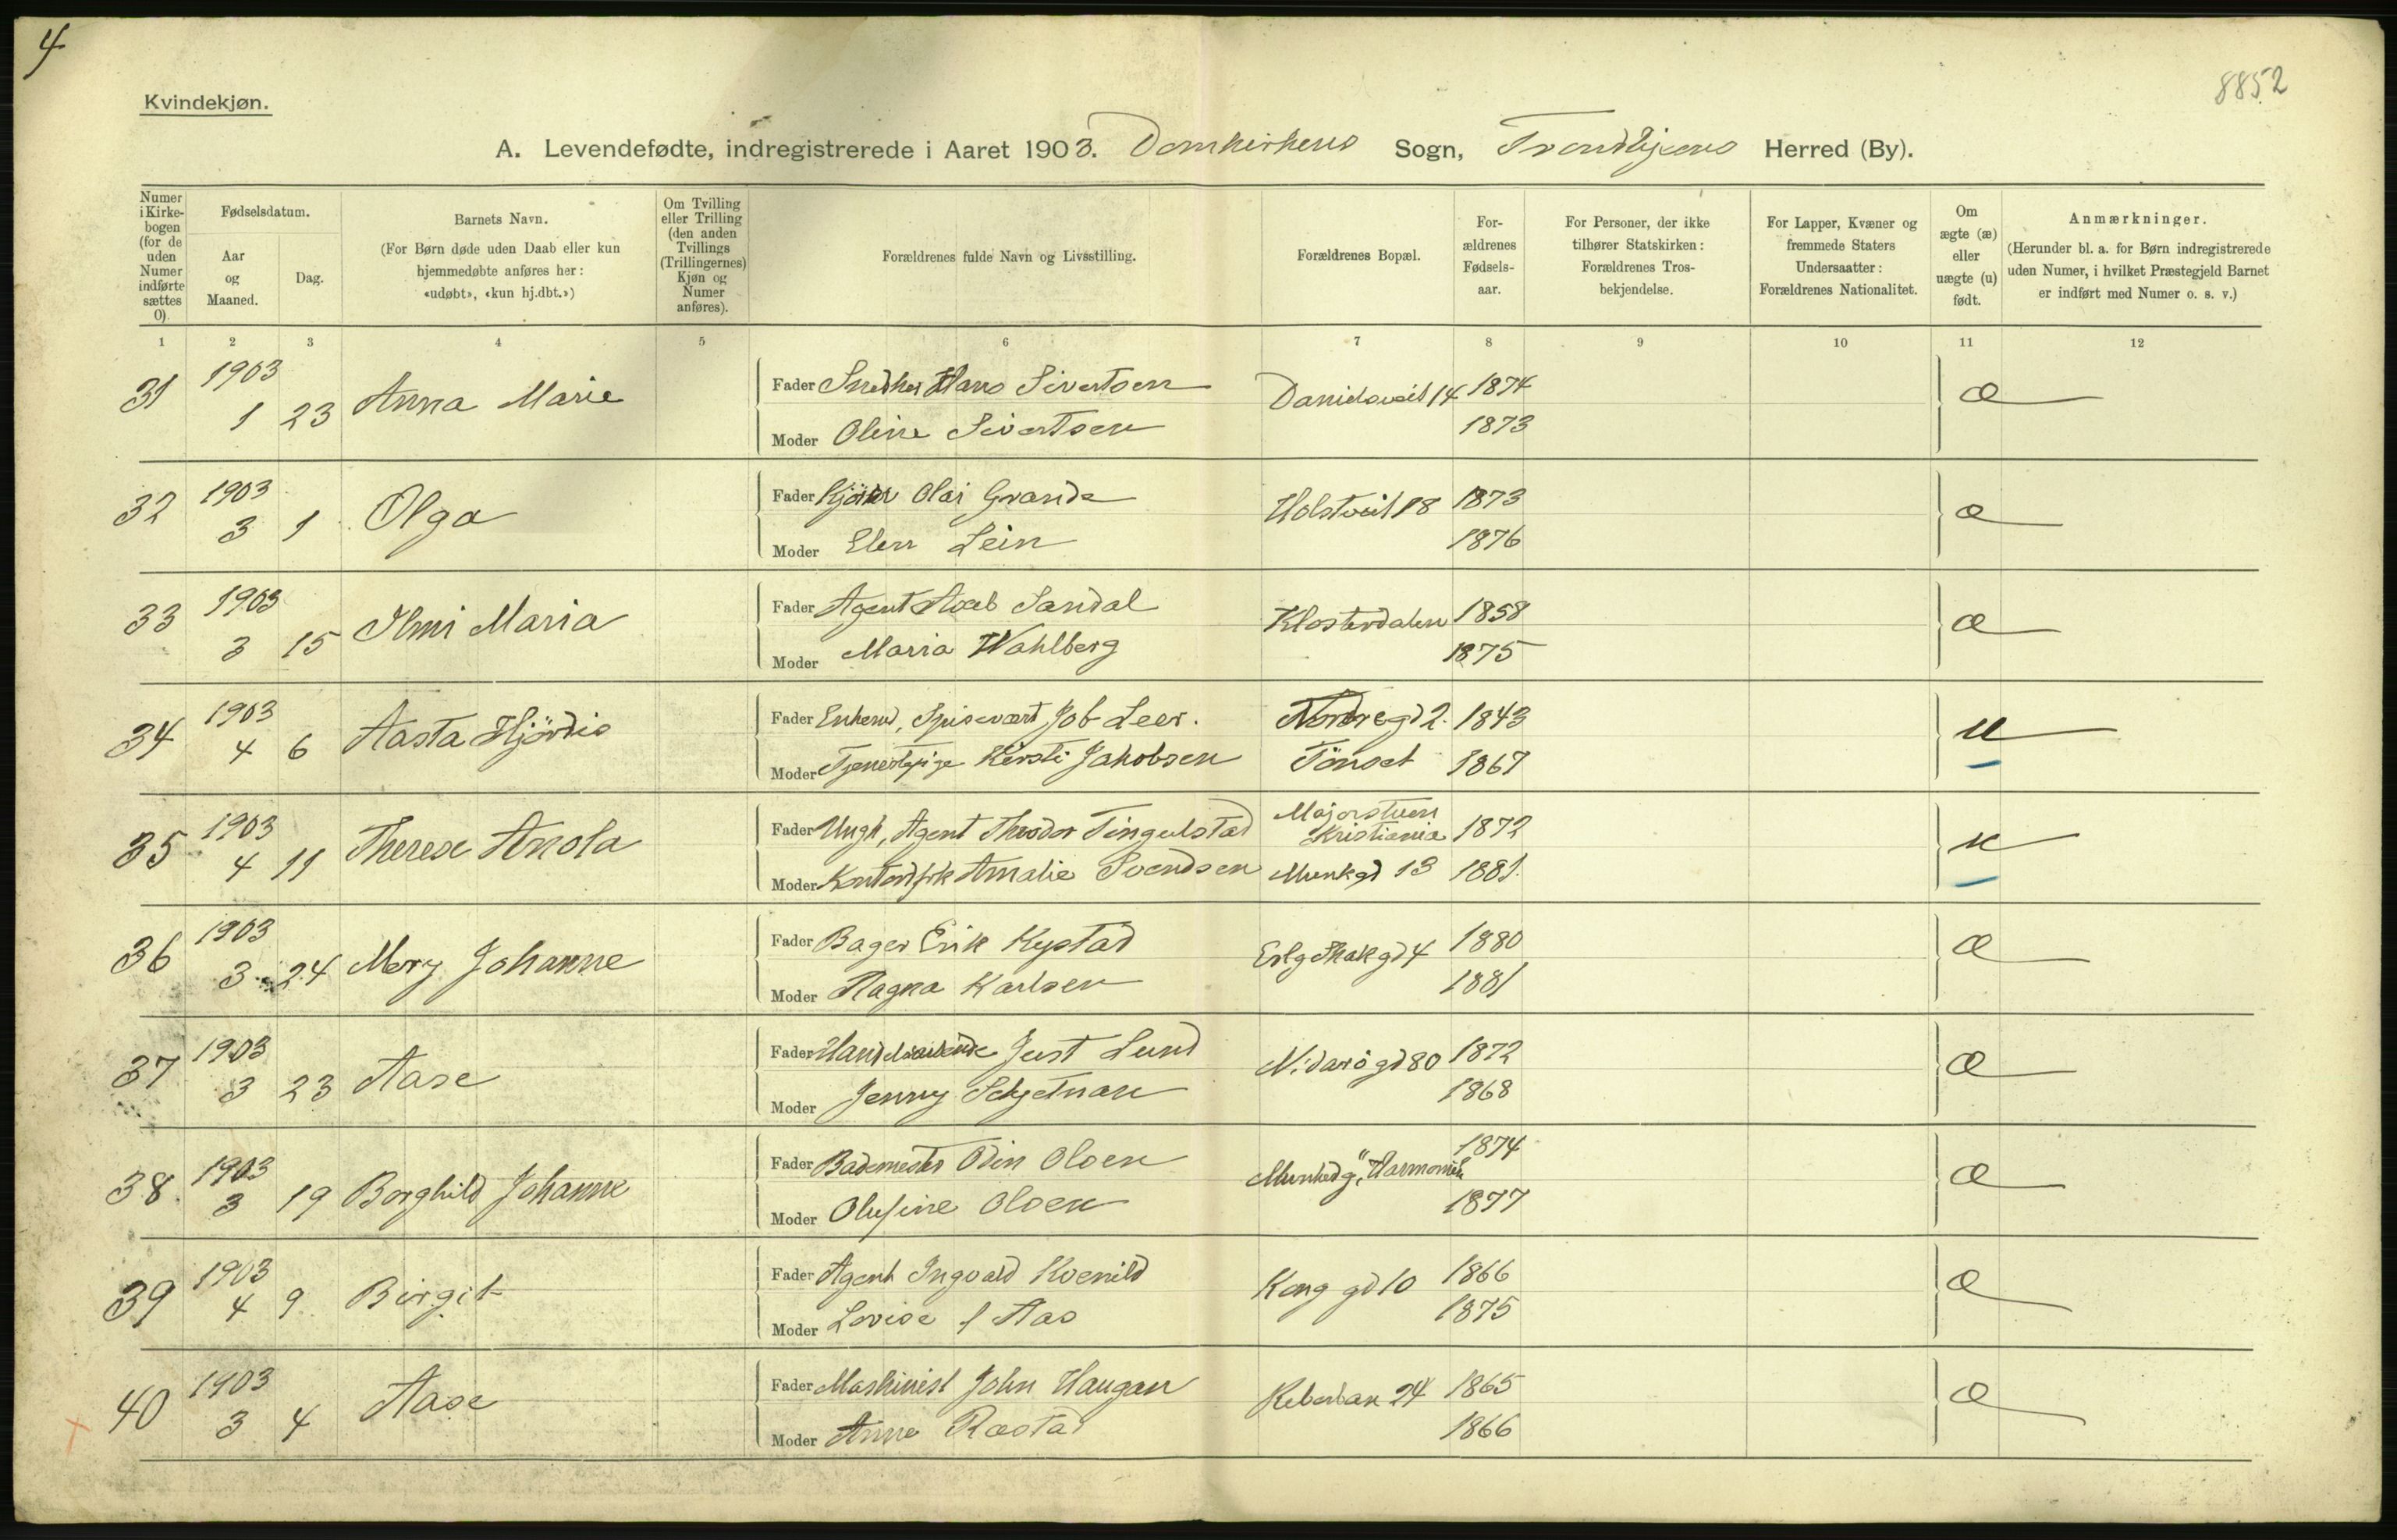 4
8852
Kvindekjøn.
A. Levendefødte, indregistrerede i Aaret 1903. Domkirkens Sogn, Trondhjems Herred (By).
Numer i Kirkebogen (for de uden Numer indførte sættes 0).
Fødselsdatum.
Aar og Maaned.
Dag.
Barnets Navn.
(For Børn døde uden Daab eller kun hjemmedøbte anføres her: «udøbt», «kun hj.dbt.»)
Om Tvilling eller Trilling (den anden Tvillings (Trillingernes) Kjøn og Numer anføres).
Forældrenes fulde Navn og Livsstilling.
Forældrenes Bopæl.
Forældrenes Fødselsaar.
For Personer, der ikke tilhører Statskirken: Forældrenes Trosbekjendelse.
For Lapper, Kvæner og fremmede Staters Undersaatter: Forældrenes Nationalitet.
Om ægte (æ) eller uægte (u) født.
Anmærkninger.
(Herunder bl. a. for Børn indregistrerede uden Numer, i hvilket Præstegjeld Barnet er indført med Numer o. s. v.)
1 2 3 4 5 6 7 8 9 10 11 12
31 1903 1 23 Anna Marie
Fader Snedker Hans Sivertsen Danielsveit 14 1874 æ
Moder Oline Sivertsen 1873
32 1903 3 1 Olga
Fader Kjører Olai Grande Holstveit 18 1873 æ
Moder Elen Lein 1876
33 1903 3 15 Ilmi Maria
Fader Agent Axel Sandal Klosterdalen 1858 æ
Moder Maria Wahlberg 1875
34 1903 4 6 Aasta Hjördis
Fader Enkemd, Spisevært Job Leer. Nordregd 2. 1843 u
Moder Tjenestepige Kirsti Jakobsen Tönset 1867
35 1903 4 11 Therese Anola
Fader Ungk, Agent Theodor Tingelstad Majorstuen Kristiania 1872 u
Moder Kontordfrk Amalie Svendsen Munkgd 13 1881.
36 1903 3 24 Mery Johanne
Fader Bager Erik Kystad Erlg Skakgd 4 1880 æ
Moder Ragna Karlsen 1881
37 1903 3 23 Aase
Fader Just Lund Nidarögd 80 1872 æ
Moder Jenny Schjetnan 1868
38. 1903 3 19 Borghild Johanne
Fader Bademester Odin Olsen Munkedg, "Harmonien" 1874 æ
Moder Olufine Olsen 1877
39 1903 4 9 Birgit
Fader Agent Ingvald Kvenild Kong gd 10 1866 æ
Moder Lovise f Aas 1875
40 1903 3 4 Aase
Fader Maskinist John Haugan Reberban 24 1865 æ
Moder Anne Rostad 1866